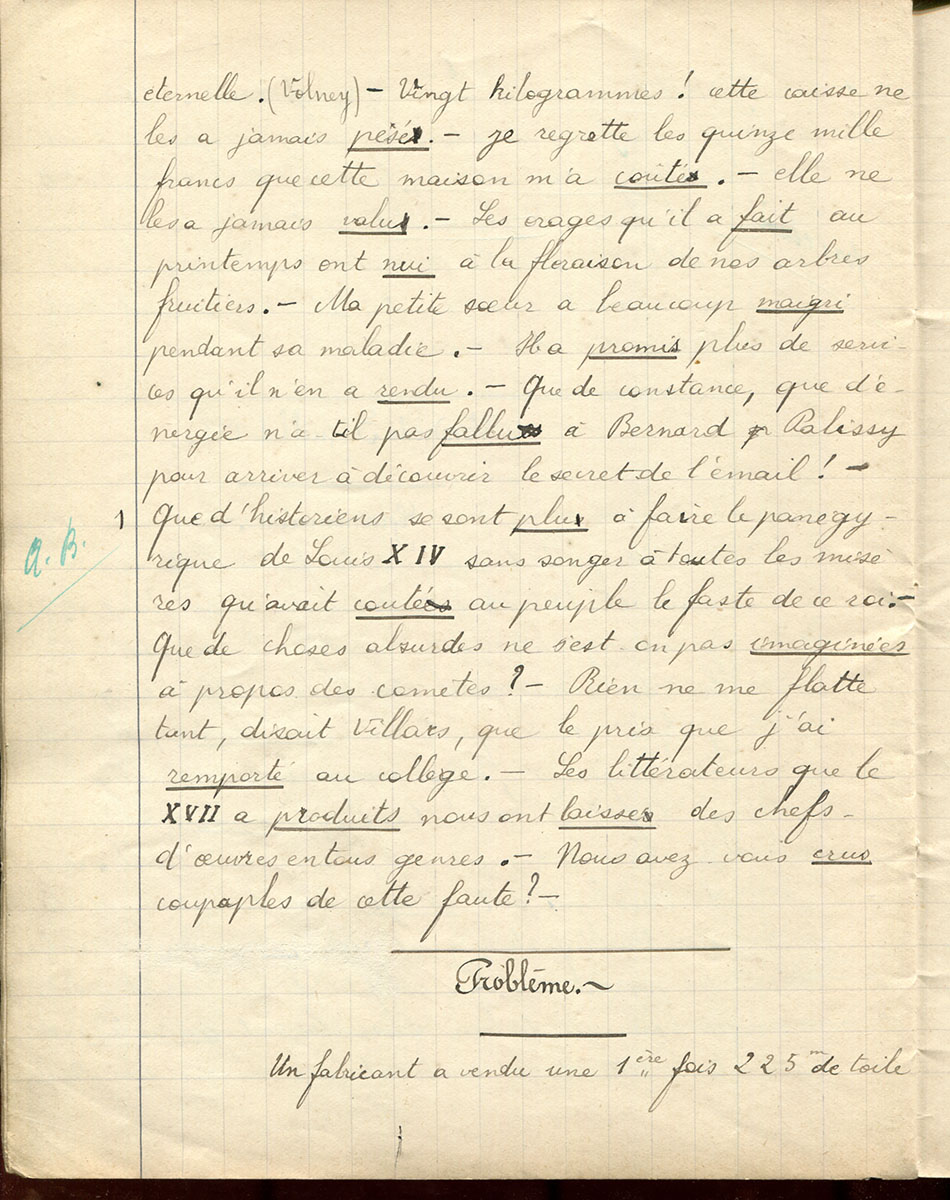 eternelle. (Volney) - Vingt kilogrammes ! cette caisse ne
les a jamais pesé. - je regrette les quinze mille
francs que cette maison m'a couté. - elle ne
les a jamais valu. - Les orages qu'il a fait au
printemps ont nui à la floraison de nos arbres
fruitiers. - Ma petite sœur a beaucoup maigri
pendant sa maladie. - Il a promis plus de servi-
ces qu'il n'en a rendu. - Que de constance, que d'é-
nergie n'a til pas fallu à Bernard Palissy
pour arriver à découvrir le secret de l'émail ! -
1 Que d'historiens se sont plu à faire le panégy-
a. B.
rique de Louis XIV sans songer à toutes les misè
res qu'avait coutées au peuple le faste de ce roi. -
Que de choses absurdes ne s'est on pas imaginées
à propos des cometes ? - Rien ne me flatte
tant, disait Villars, que le prix que j'ai
remporté au collège. - Les littérateurs que le
XVII a produits nous ont laissé des chefs-
d'œuvres en tous genres. - Nous avez vous crus
coupaples de cette faute ? -
Problème. ~
Un fabricant a vendu une 1ère fois 225m de toile